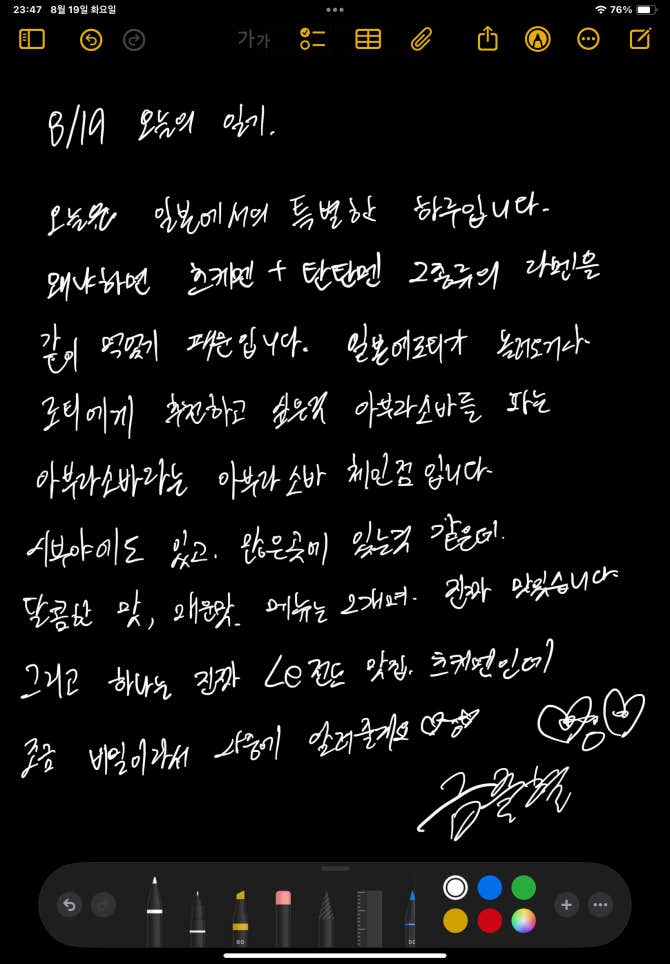 23:47 8월 19일 화요일 76%
가가
8/19 오늘의 일기.
오늘은 일본에서의 특별한 하루입니다.
왜냐하면 츠케멘 + 탄탄멘 2종류의 라멘을
같이 먹었기 때문입니다. 일본에 로티가 놀러오거나
로티에게 추천하고 싶은것 아부라소바를 파는
아부라소바라는 아부라 소바 체인점 입니다.
시부야에도 있고. 많은곳에 있는것 같은데.
달콤한 맛, 매운맛. 메뉴는 2개며. 진짜 맛있습니다.
그리고 하나는 진짜 Le전드 맛집. 츠케멘인데
조금 비밀이라서 나중에 알려줄게요
80